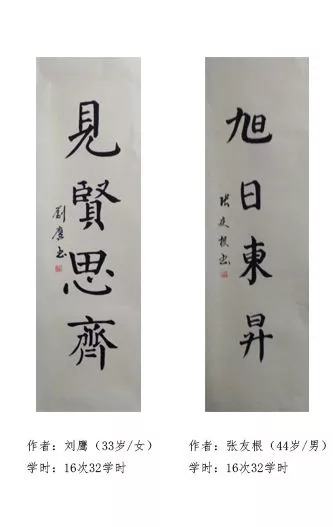 見賢思齊
劉鹰书
旭日東昇
张友根书
作者：刘鹰（33岁/女）
学时：16次32学时
作者：张友根（44岁/男）
学时：16次32学时